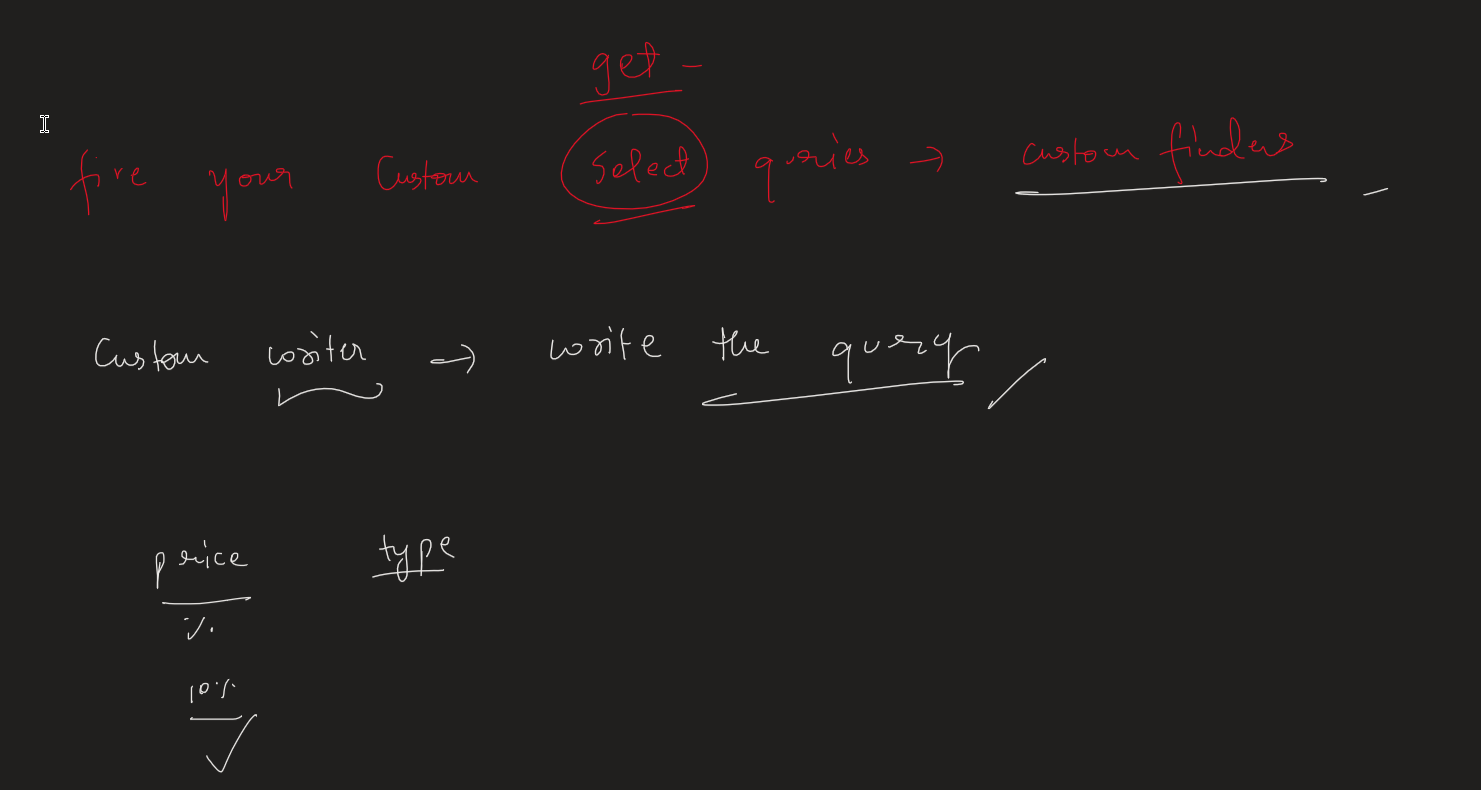 get -
fire your Custom Select queries → custom finders -
Custom writer → write the query
price type
%
10%